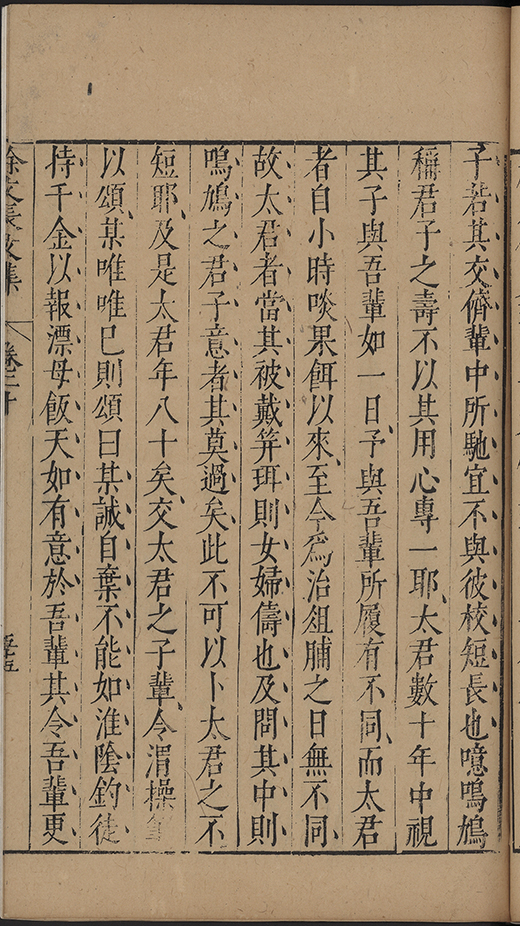 子若其交儕輩中所馳宜不與彼校短長也噫鳴鳩
稱君子之壽不以其用心專一耶太君數十年中視
其子與吾輩如一日予與吾輩所履有不同而太君
者自小時啖果餌以來至今為治俎脯之日無不同
故太君者當其被戴笄珥則女婦儔也及問其中則
鳴鳩之君子意者其莫過矣此不可以卜太君之不
短耶及是太君年八十矣交太君之子輩令渭操筆
以頌某唯唯巳則頌曰某誠自棄不能如淮陰釣徒
持千金以報漂母飯天如有意於吾輩其令吾輩更
徐文長文集 卷二十